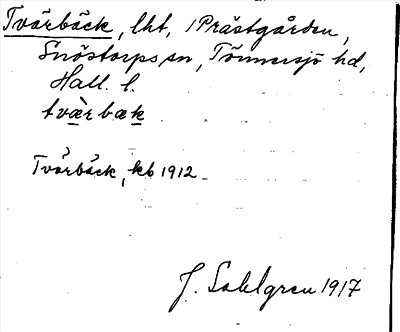 Tvärbäck, lht, i Prästgården,
Snöstorps sn, Tönnersjö hd,
Hall. l.
tvæ̀rbæk
Tvärbäck, kb 1912
J. Sahlgren 1917